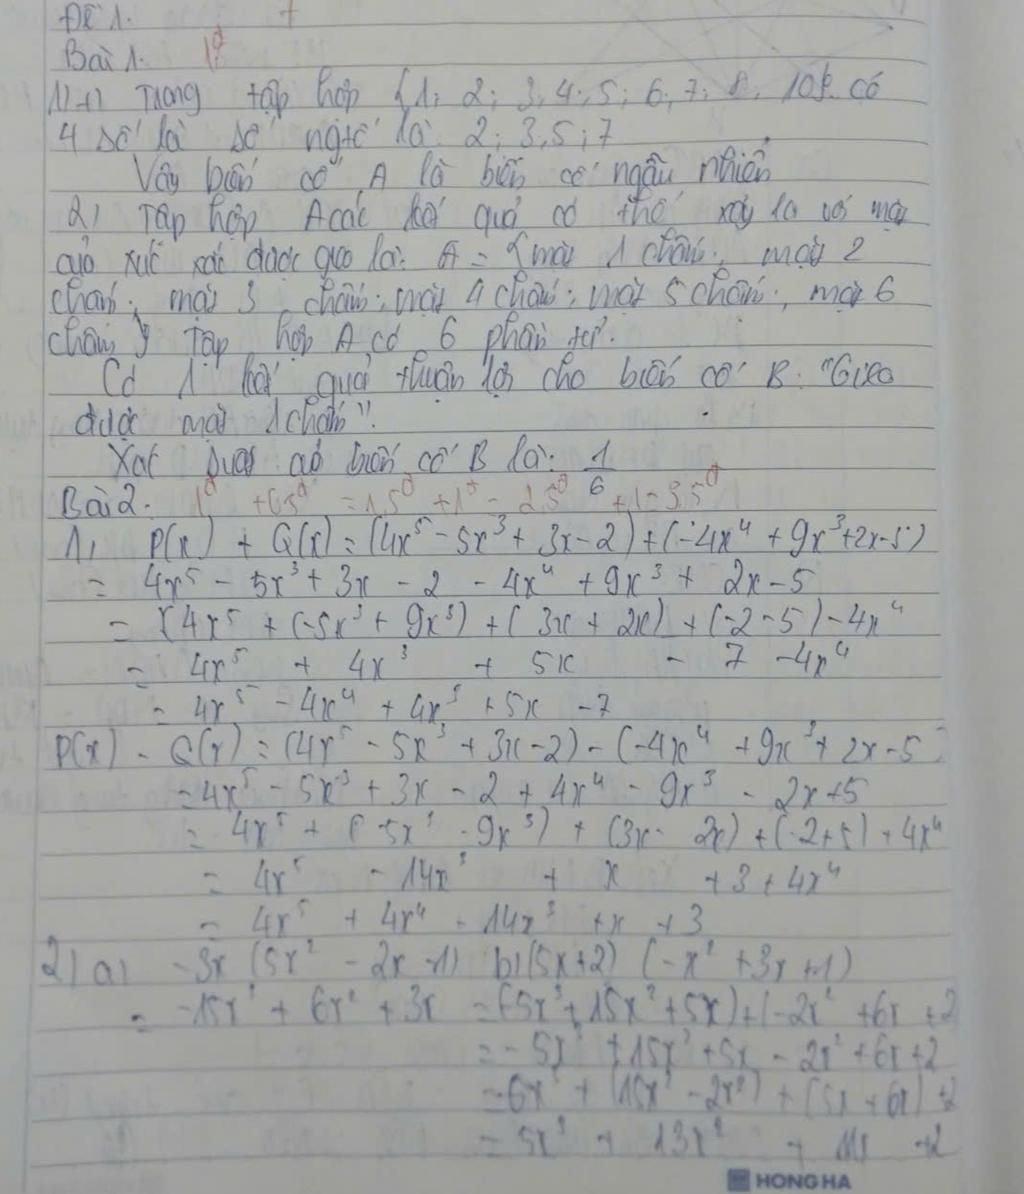 Đề 1.
Bài 1. 1đ
1) +) Trong tập hợp {1; 2; 3; 4; 5; 6; 7; 8; 10} có
4 số là số ngtố là: 2; 3; 5; 7
Vậy biến cố A là biến cố ngẫu nhiên
2) Tập hợp A các kết quả có thể xảy ra với mặt
của xúc xắc được gieo là: A = {mặt 1 chấm; mặt 2
chấm; mặt 3 chấm; mặt 4 chấm; mặt 5 chấm; mặt 6
chấm} Tập hợp A có 6 phần tử.
Có 1 kết quả thuận lợi cho biến cố B: "Gieo
được mặt 1 chấm".
Xác suất của biến cố B là: 1/6
Bài 2. 1đ + 0,5đ = 1,5đ + 1đ = 2,5đ + 1 = 3,5đ
1, P(x) + Q(x) = (4x⁵ - 5x³ + 3x - 2) + (-4x⁴ + 9x³ + 2x - 5)
= 4x⁵ - 5x³ + 3x - 2 - 4x⁴ + 9x³ + 2x - 5
= (4x⁵ + (-5x³ + 9x³) + (3x + 2x) + (-2 - 5) - 4x⁴
= 4x⁵ + 4x³ + 5x - 7 - 4x⁴
= 4x⁵ - 4x⁴ + 4x³ + 5x - 7
P(x) - Q(x) = (4x⁵ - 5x³ + 3x - 2) - (-4x⁴ + 9x³ + 2x - 5
= 4x⁵ - 5x³ + 3x - 2 + 4x⁴ - 9x³ - 2x + 5
= 4x⁵ + (-5x³ - 9x³) + (3x - 2x) + (-2 + 5) + 4x⁴
= 4x⁵ - 14x³ + x + 3 + 4x⁴
= 4x⁵ + 4x⁴ - 14x³ + x + 3
2) a) -3x (5x² - 2x - 1) b) (5x + 2) (-x² + 3x + 1)
= -15x³ + 6x² + 3x = (-5x³ + 15x² + 5x) + (-2x² + 6x + 2
= -5x³ + 15x² + 5x - 2x² + 6x + 2
= -6x³ + (15x² - 2x²) + (5x + 6x) + 2
= 5x³ + 13x² + 11x + 2
HONG HA